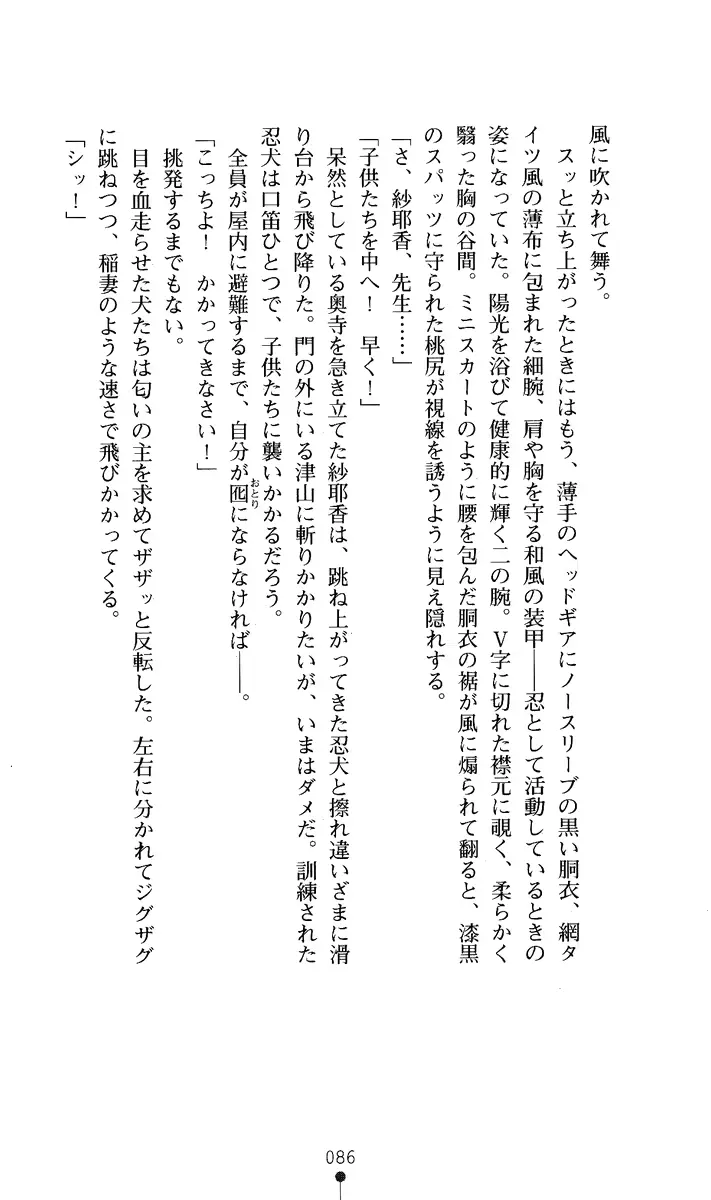 風に吹かれて舞う。
　スッと立ち上がったときにはもう、薄手のヘッドギアにノースリーブの黒い胴衣、網タ
イツ風の薄布に包まれた細腕、肩や胸を守る和風の装甲――忍として活動しているときの
姿になっていた。陽光を浴びて健康的に輝く二の腕。Ｖ字に切れた襟元に覗く、柔らかく
翳った胸の谷間。ミニスカートのように腰を包んだ胴衣の裾が風に煽られて翻ると、漆黒
のスパッツに守られた桃尻が視線を誘うように見え隠れする。
「さ、紗耶香、先生……」
「子供たちを中へ！　早く！」
　呆然としている奥寺を急き立てた紗耶香は、跳ね上がってきた忍犬と擦れ違いざまに滑
り台から飛び降りた。門の外にいる津山に斬りかかりたいが、いまはダメだ。訓練された
忍犬は口笛ひとつで、子供たちに襲いかかるだろう。
　全員が屋内に避難するまで、自分が囮おとりにならなければ――。
「こっちよ！　かかってきなさい！」
　挑発するまでもない。
　目を血走らせた犬たちは匂いの主を求めてザザッと反転した。左右に分かれてジグザグ
に跳ねつつ、稲妻のような速さで飛びかかってくる。
「シッ！」
086